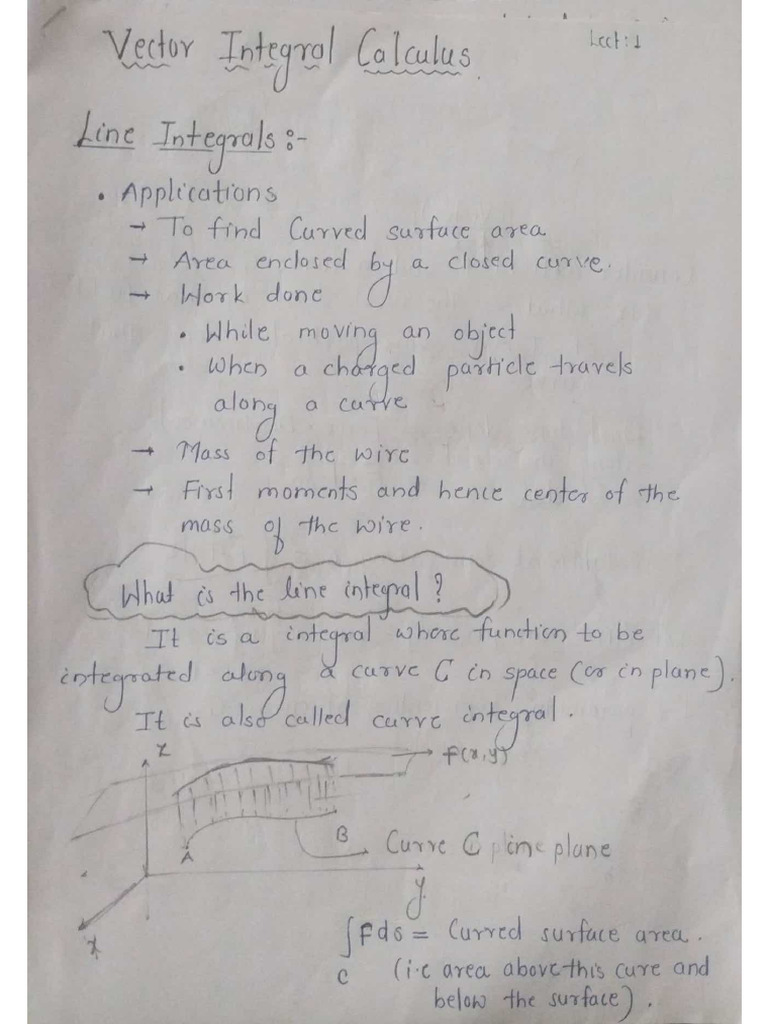 Vector Integral Calculus.
Lect:1
Line Integrals :-
• Applications
→ To find Curved surface area
→ Area enclosed by a closed curve.
→ Work done
• While moving an object
• When a charged particle travels
along a curve
→ Mass of the wire
→ First moments and hence center of the
mass of the wire.
What is the line integral?
It is a integral where function to be
integrated along a curve C in space (or in plane).
It is also called curve integral.
z
f(x,y)
A
B
Curve C in plane
y
x
∫ F ds = Curved surface area.
C (i.e area above this cure and
below the surface).